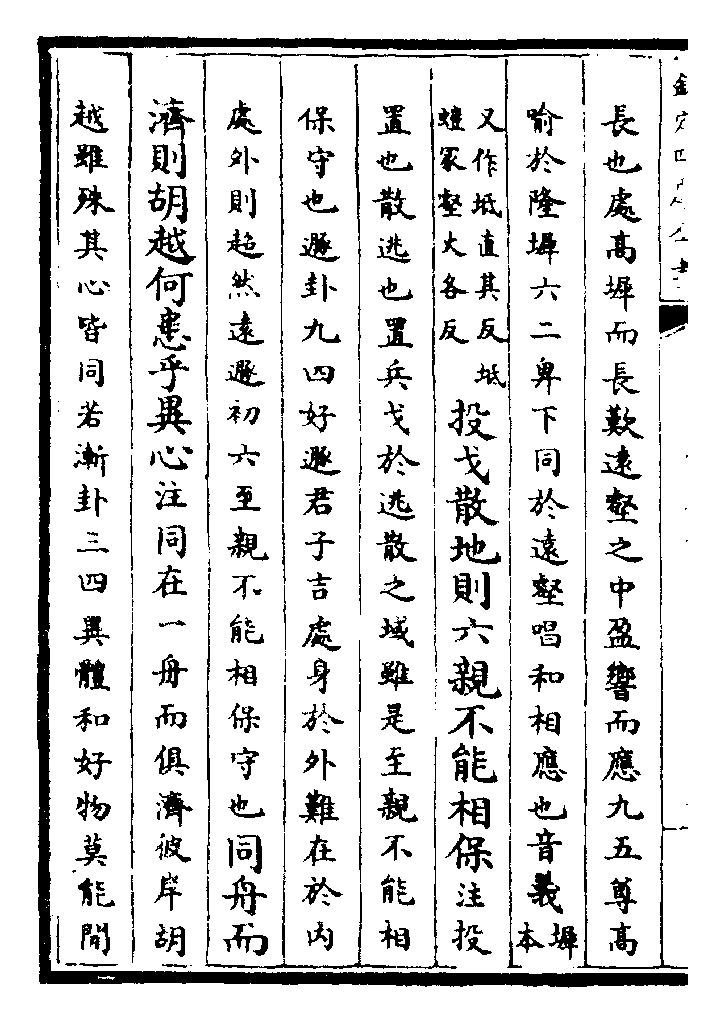 長也處髙墀而長歎遠壑之中盈響而應九五尊髙
喻於隆墀六二卑下同於遠壑唱和相應也音義墀本
又作坻直其反坻
螘冢壑火各反
投戈散地則六親不能相保注投
置也散逃也置兵戈於逃散之域雖是至親不能相
保守也遯卦九四好遯君子吉處身於外難在於内
處外則超然遠遯初六至親不能相保守也同舟而
濟則胡越何患乎異心注同在一舟而俱濟彼岸胡
越雖殊其心皆同若漸卦三四異體和好物莫能間